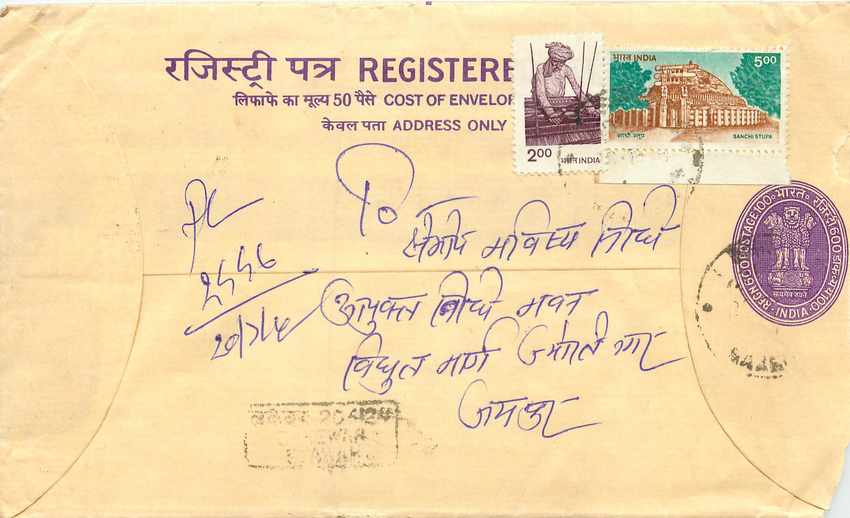 रजिस्ट्री पत्र REGISTERE
लिफाफे का मूल्य 50 पैसे COST OF ENVELOP
केवल पता ADDRESS ONLY
2.00 भारत INDIA
भारत INDIA 5.00
सांची स्तूप SANCHI STUPA
REGN 600 POSTAGE 100 भारत रजिस्ट्री 600 डाक-भार 100
सत्यमेव जयते
INDIA
To
क्षेत्रीय भविष्य निधि
आयुक्त निधि भवन
विद्युत मार्ग ज्योति नगर
जयपुर